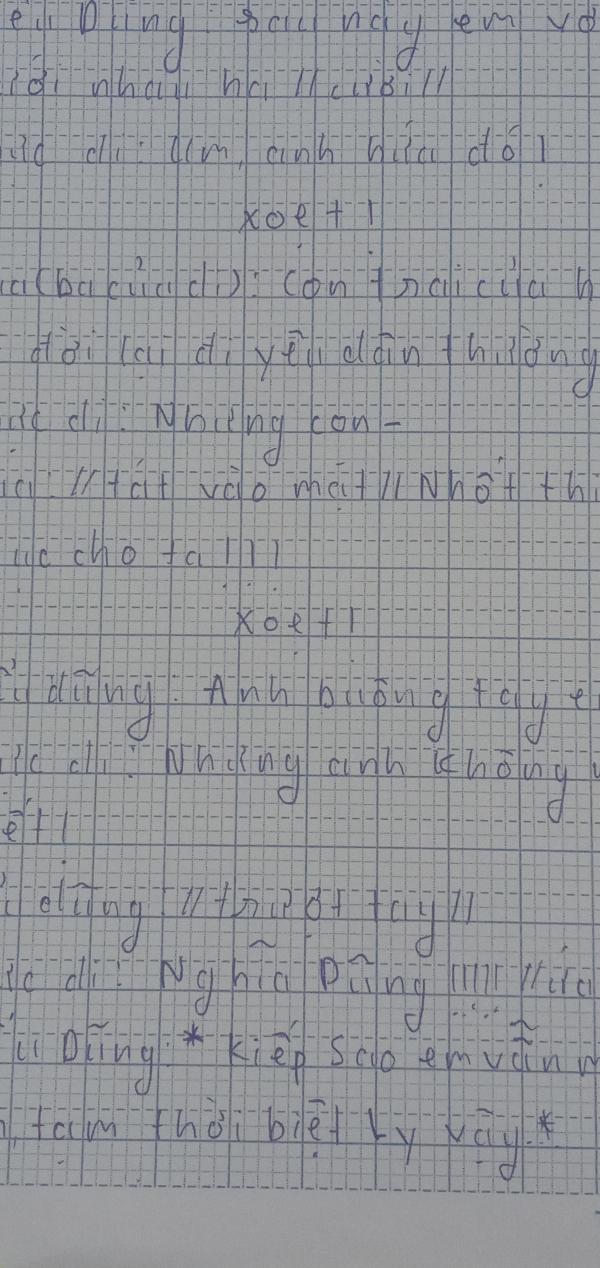 Dũng: sau này em và
nhau ha //cười//
di: Ừm, anh hứa đó!
xoẹt!
(ba của di): Con trai của
đời lại đi yêu dân thường
di: Nhưng con-
//tát vào mặt// Nhốt
cho ta!!!
xoẹt!
dũng: Anh buông tay
di: Nhưng anh không
dũng //trượt tay//
di: Nghĩa Dũng!!!!!
Dũng: *kiếp sao em vẫn
tạm thời biệt ly vậy.*